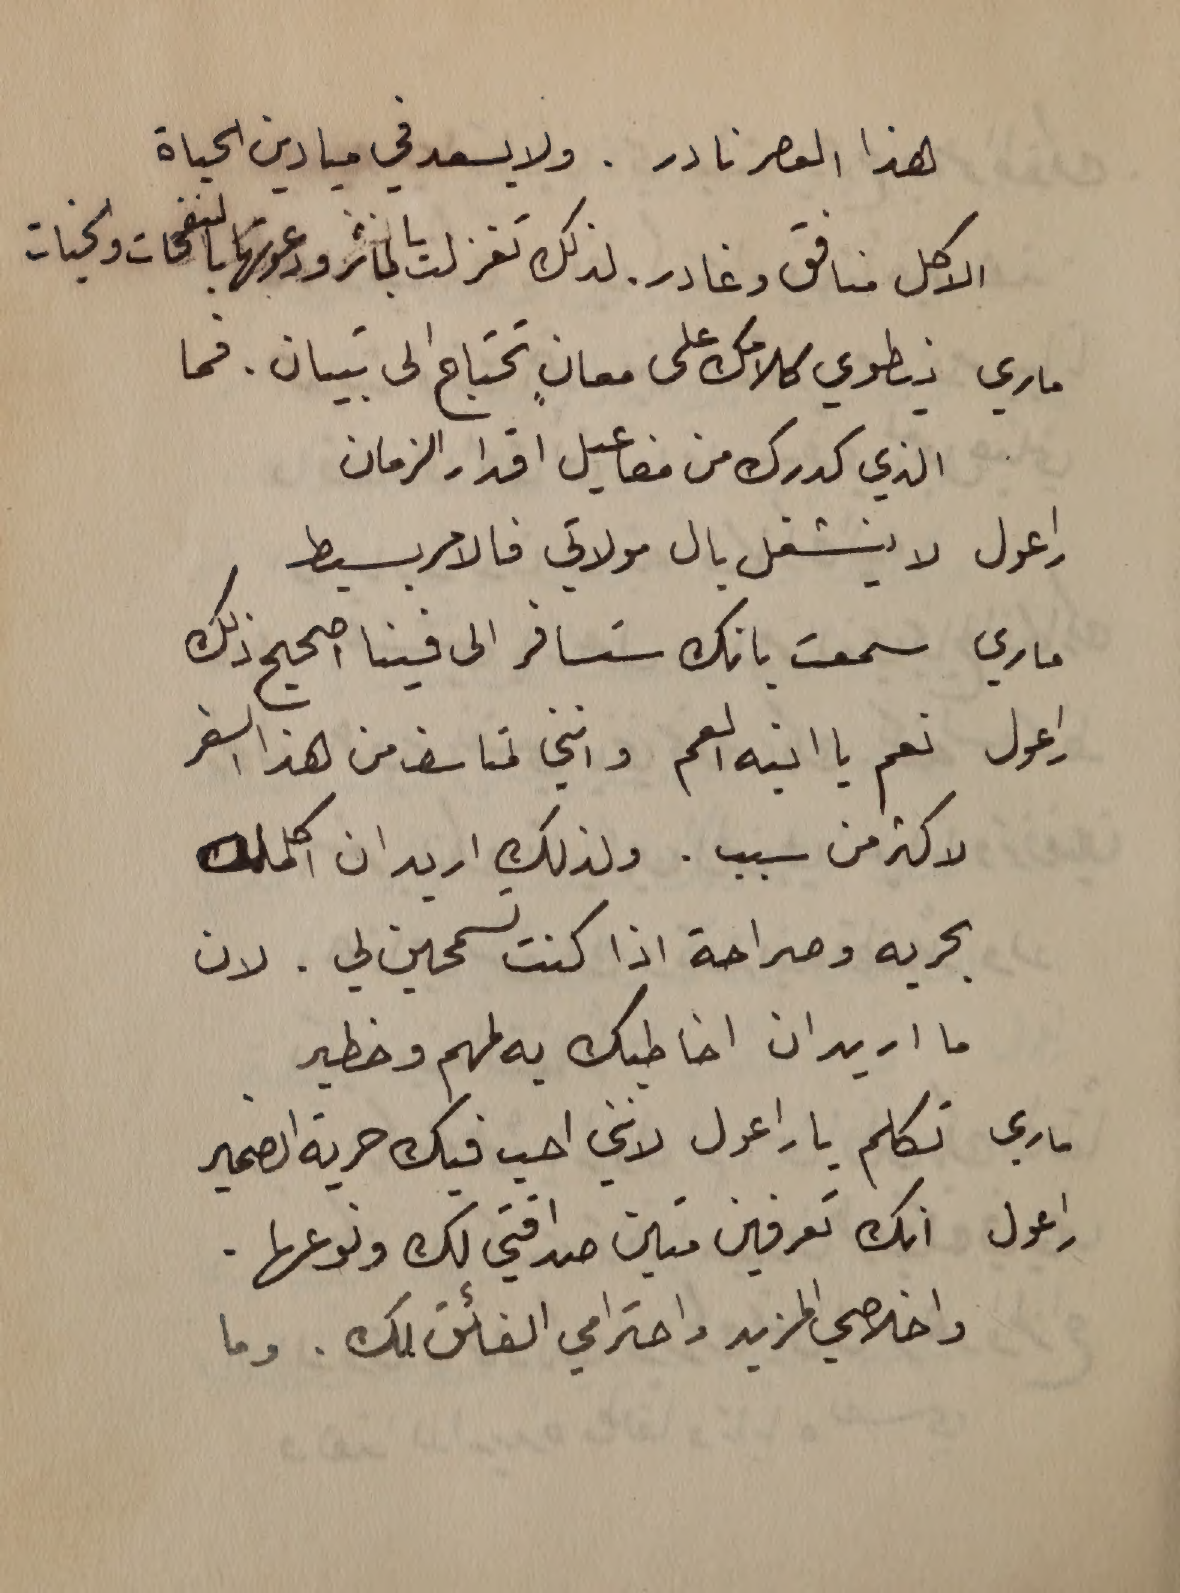 هذا العصر نادر . ولا يسعد في ميادين الحياة
الا كل منافق وغادر . لذلك تغزلت بالمآثر ودعوتها بالنفحات
ماري ينطوي كلامك على معانٍ تحتاج الى تبيان . فما
الذي كدرك من مفاعيل اقدار الزمان
راعول لا ينشغل بال مولاتي فالامر بسيط
ماري سمعت بانك ستسافر الى فينا اصحيح ذلك
راعول نعم يا ابنه العم وانني لمتاسف من هذا السفر
لاكثر من سبب . ولذلك اريد ان اكلمك
بحريه وصراحة اذا كنت تسمحين لي . لان
ما اريد ان اخاطبك به لمهم وخطير
ماري تكلم يا راعول لانني احب فيك حرية الضمير
راعول انك تعرفين متين صداقتي لك ونوعها .
واخلاصي المزيد واحترامي الفائق لك . وما